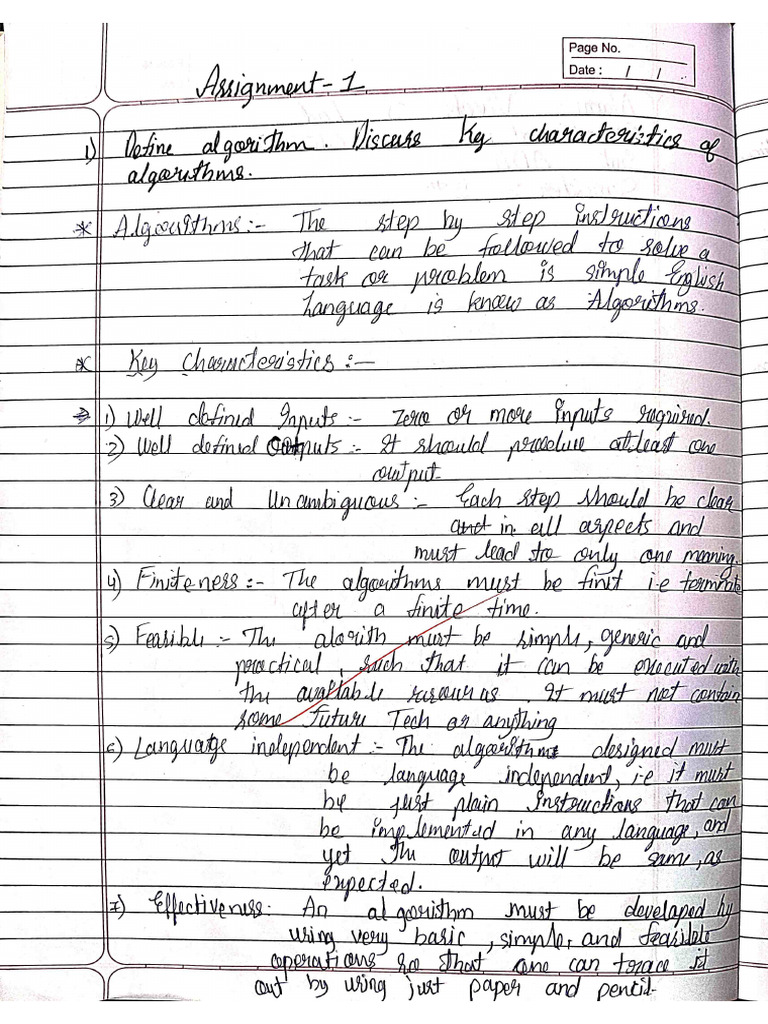 Page No.
Date : / /
Assignment - 1
1) Define algorithm. Discuss Key characteristics of
algorithms.
* Algorithms :- The step by step instructions
that can be followed to solve a
task or problem is simple English
Language is know as Algorithms.
* Key Characteristics :-
→ 1) Well defined Inputs :- Zero or more inputs required.
2) Well defined Outputs :- It should procedure atleast one
output.
3) Clear and Unambiguous :- Each step should be clear
and in all aspects and
must lead to only one meaning.
4) Finiteness :- The algorithms must be finit i.e terminate
after a finite time.
5) Feasible :- The alorith must be simple, generic and
practical, such that it can be executed with
the available resources. It must not contain
some future Tech or anything
6) Language independent :- The algorithms designed must
be language independent, i.e it must
be just plain instructions that can
be implemented in any language, and
yet the output will be same, as
expected.
7) Effectiveness: An algorithm must be developed by
using very basic, simple, and feasible
operations so that one can trace it
out by using just paper and pencil.